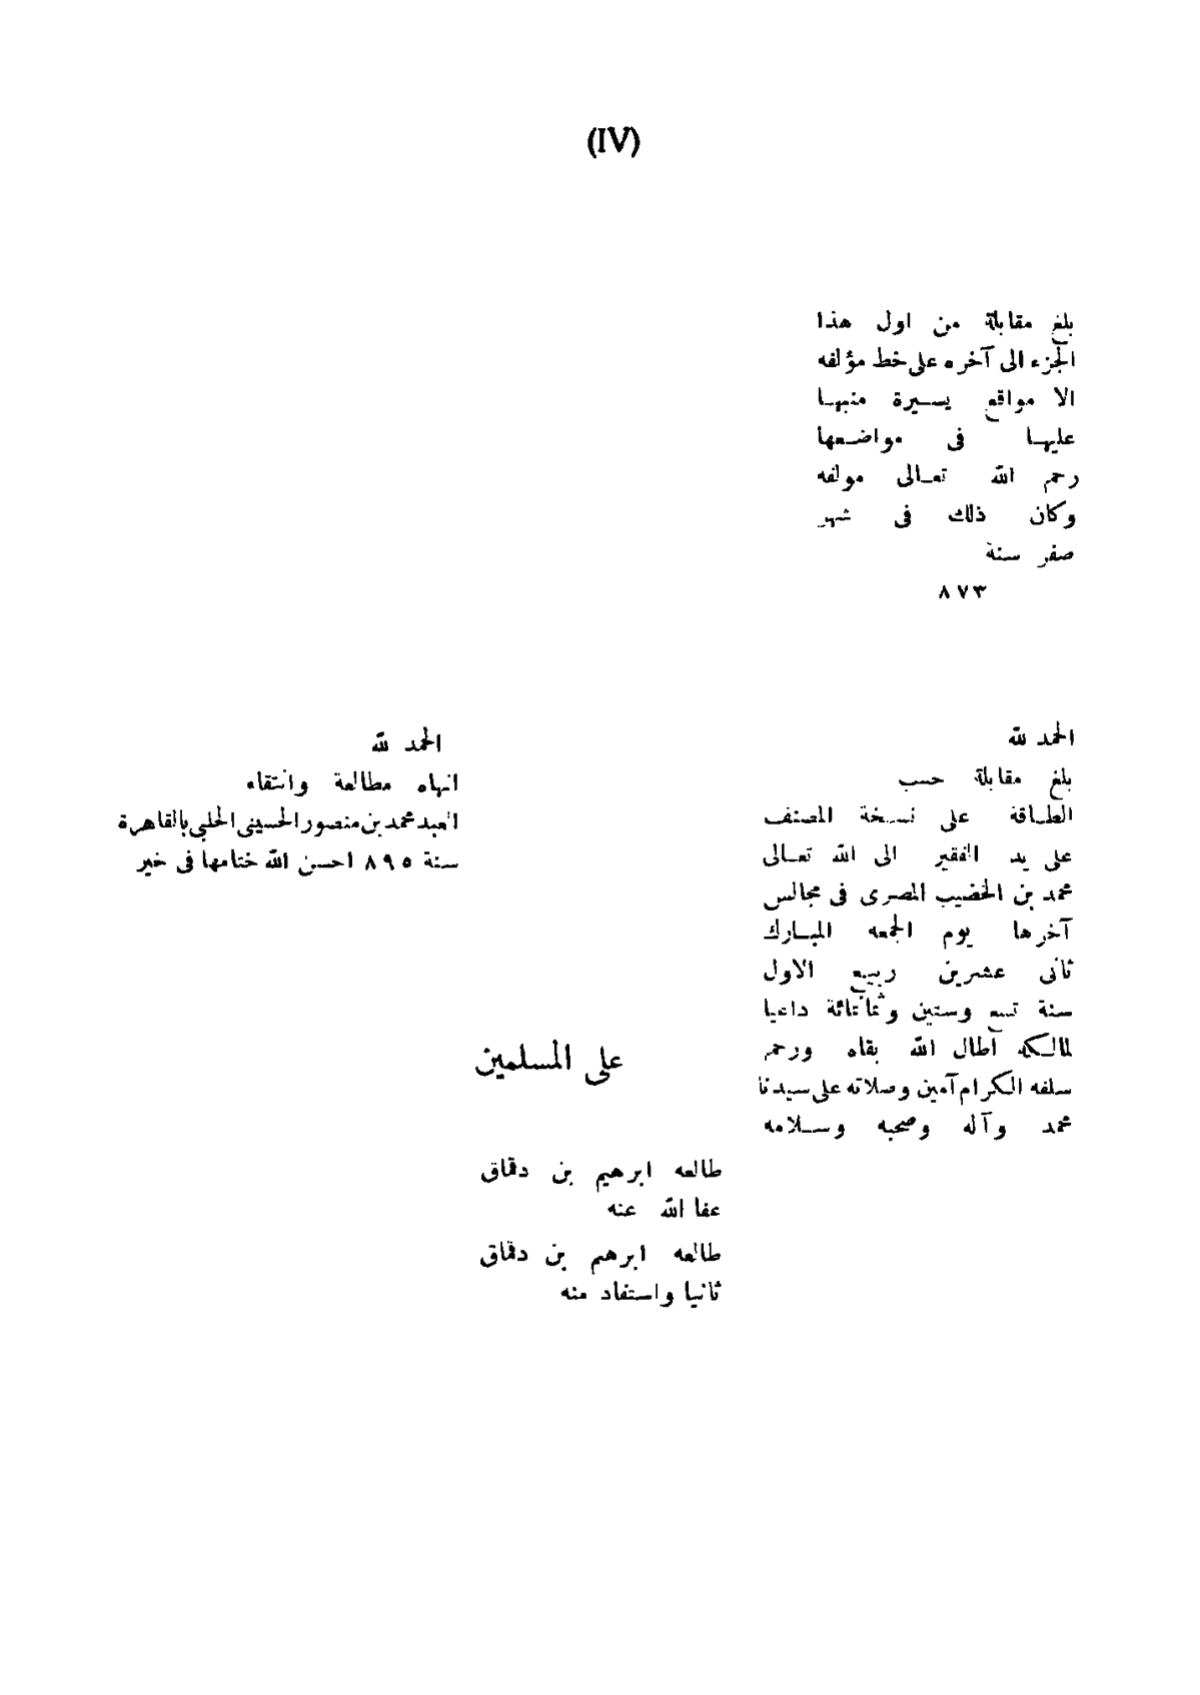 (IV)
بلغ مقابلة من اول هذا
الجزء الى آخره على خط مؤلفه
الا مواقع يسيرة منبها
عليها فى مواضعها
رحم الله تعالى مولفه
وكان ذلك فى شهر
صفر سنة
٨٧٣
الحمد لله
بلغ مقابلة حسب
الطاقة على نسخة المصنف
على يد الفقير الى الله تعالى
محمد بن الخضيب المصرى فى مجالس
آخرها يوم الجمعه المبارك
ثانى عشرين ربيع الاول
سنة تسع وستين وثمانمائة داعيا
لمالكه اطال الله بقاه ورحم
سلفه الكرام آمين وصلاته على سيدنا
محمد وآله وصحبه وسلامه
الحمد لله
انهاه مطالعة وانتقاء
العبد محمد بن منصور الحسينى الحلبى بالقاهرة
سنة ٨٩٥ احسن الله ختامها فى خير
على المسلمين
طالعه ابرهيم بن دقماق
عفا الله عنه
طالعه ابرهم بن دقماق
ثانيا واستفاد منه